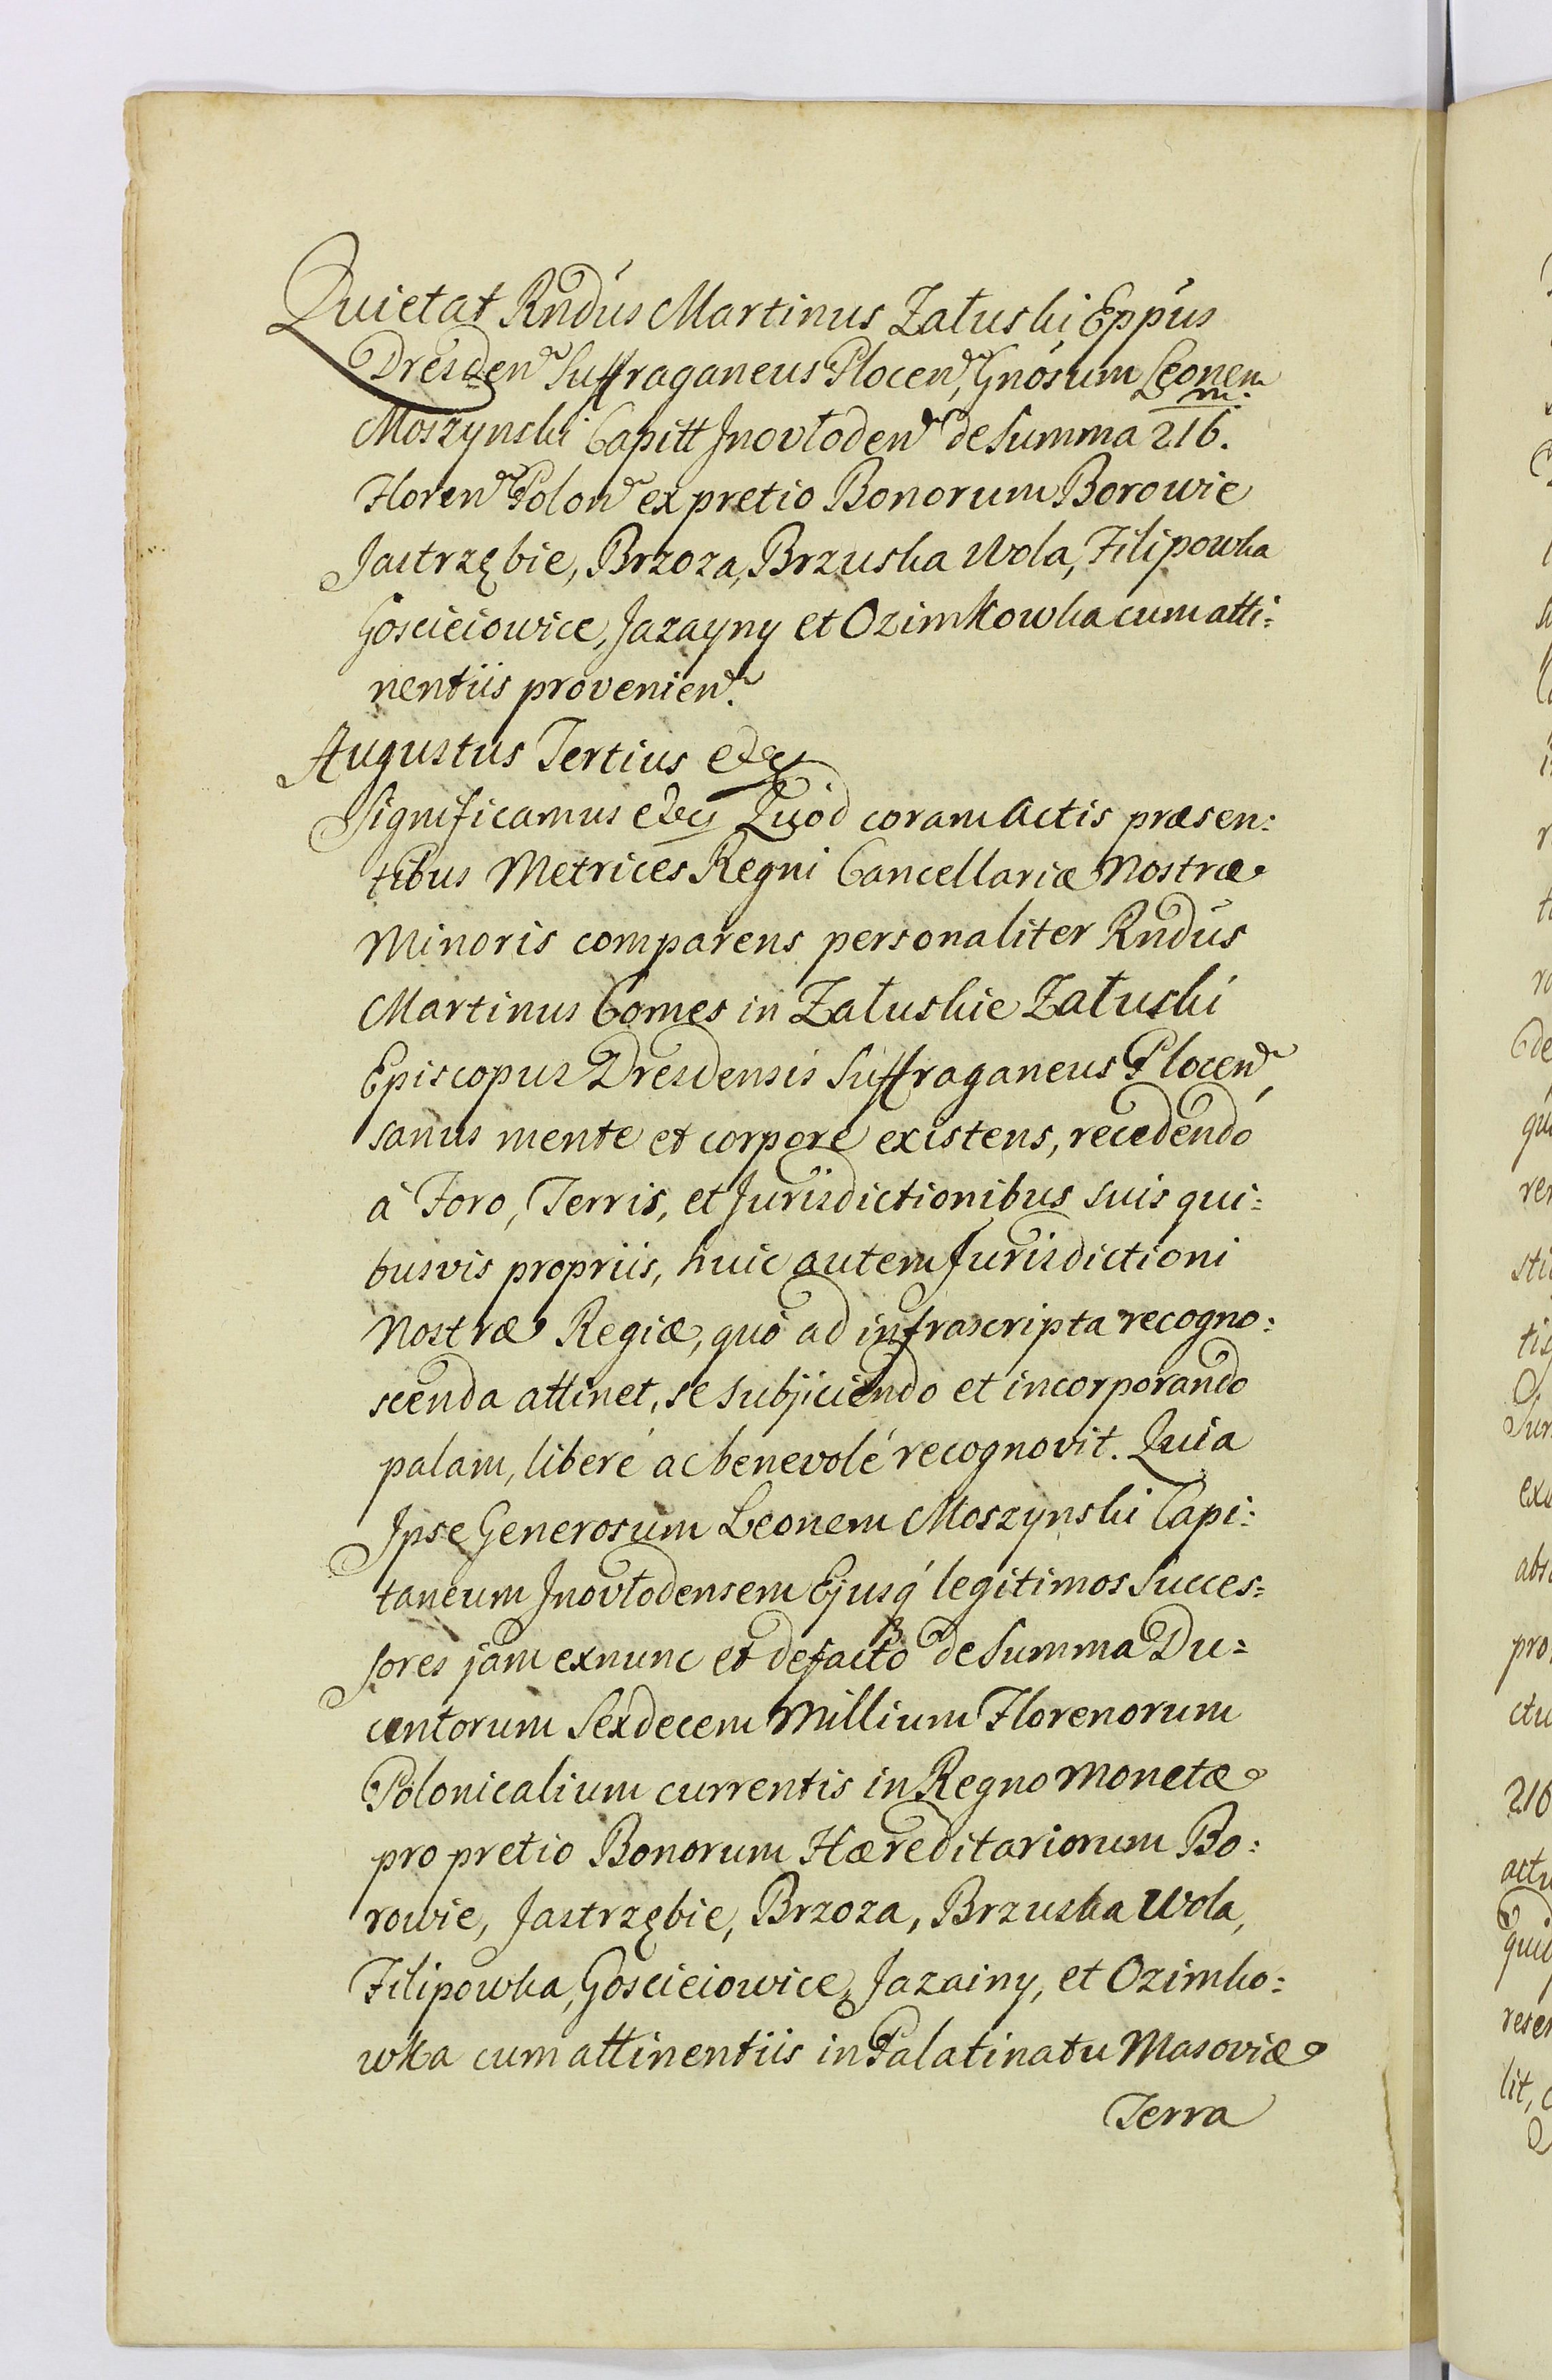 Quietat Rndus Martinus Załuski Eppus
Dresden Suffraganeus Plocen, Gnosum Leonem
Moszynski Capitt Jnovłoden de Summa 216.m.
Floren Polon ex pretio Bonorum Borowie
Jastrzębie, Brzoza, Brzuska Wola, Filipowka
Goscieiowice, Jazayny et Ozimkowka cum atti:
nentiis provenien.
Augustus Tertius etc
Significamus etc Quod coram Actis præsen:
tibus Metrices Regni Cancellariæ Nostræ
Minoris comparens personaliter Rndus
Martinus Comes in Załuskie Załuski
Episcopus Dresdensis Suffraganeus Plocen,
sanus mente et corpore existens, recedendo
à Foro, Terris, et Jurisdictionibus suis qui:
busvis propriis, huic autem Jurisdictioni
Nostræ Regiæ, quo ad infrascripta recogno:
scenda attinet, se subjiciendo et incorporando
palam, liberé ac benevolé recognovit. Quia
Jpse Generosum Leonem Moszynski Capi:
taneum Jnovłodensem Ejusq́ legitimos Succes:
sores jam exnunc et de facto de Summa Du:
centorum Sexdecem Millium Florenorum
Polonicalium currentis in Regno Monetæ
pro pretio Bonorum Hæreditariorum Bo:
rowie, Jastrzębie, Brzoza, Brzuska Wola,
Filipowka, Goscieiowice, Jazainy, et Ozimko:
wka cum attinentiis in Palatinatu Masoviæ
Terra